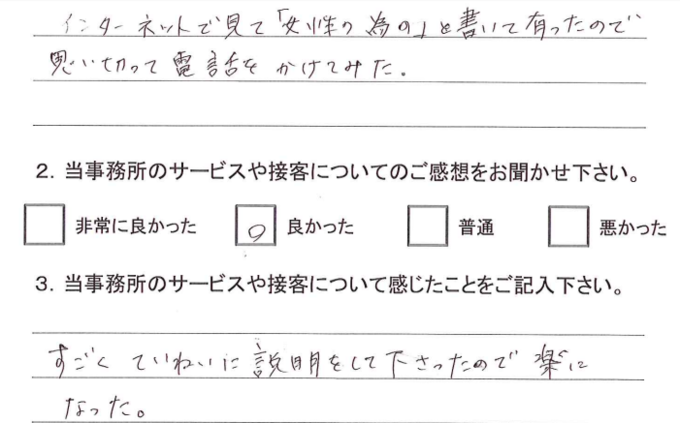 インターネットで見て「女性の為の」と書いて有ったので
思い切って電話をかけてみた。
2. 当事務所のサービスや接客についてのご感想をお聞かせ下さい。
非常に良かった 良かった 普通 悪かった
3. 当事務所のサービスや接客について感じたことをご記入下さい。
すごくていねいに説明をして下さったので楽に
なった。